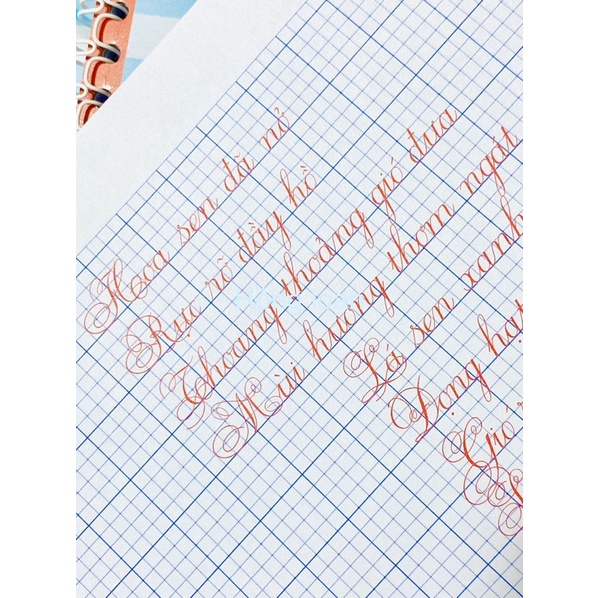 Hoa sen đã nở
Rực rỡ đầy hồ
Thoang thoảng gió đưa
Mùi hương thơm ngát
Lá sen xanh
Đọng hạt
Gió